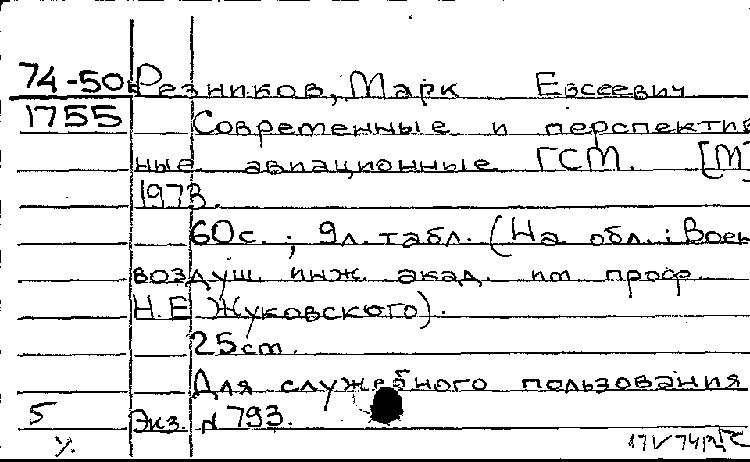 74-50в Резников, Марк Евсеевич
1755 Современные и перспектив
ные авиационные ГСМ. [М]
1973.
60с.; 9л. табл. (На обл.: Воен
воздуш. инж. акад. им проф
Н.Е Жуковского).
25см.
Для служебного пользования
5 Экз N 793.